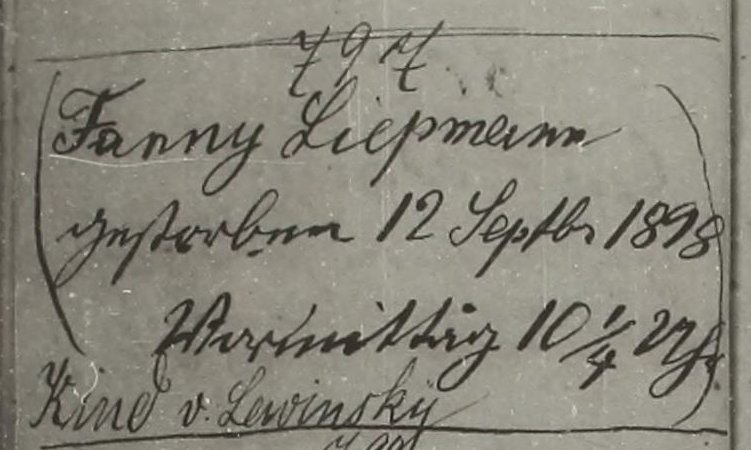 797
Fanny Liepmann
gestorben 12 Septbr 1898
Vormittag 10 1/4 Uhr
Kind v. Lewinsky